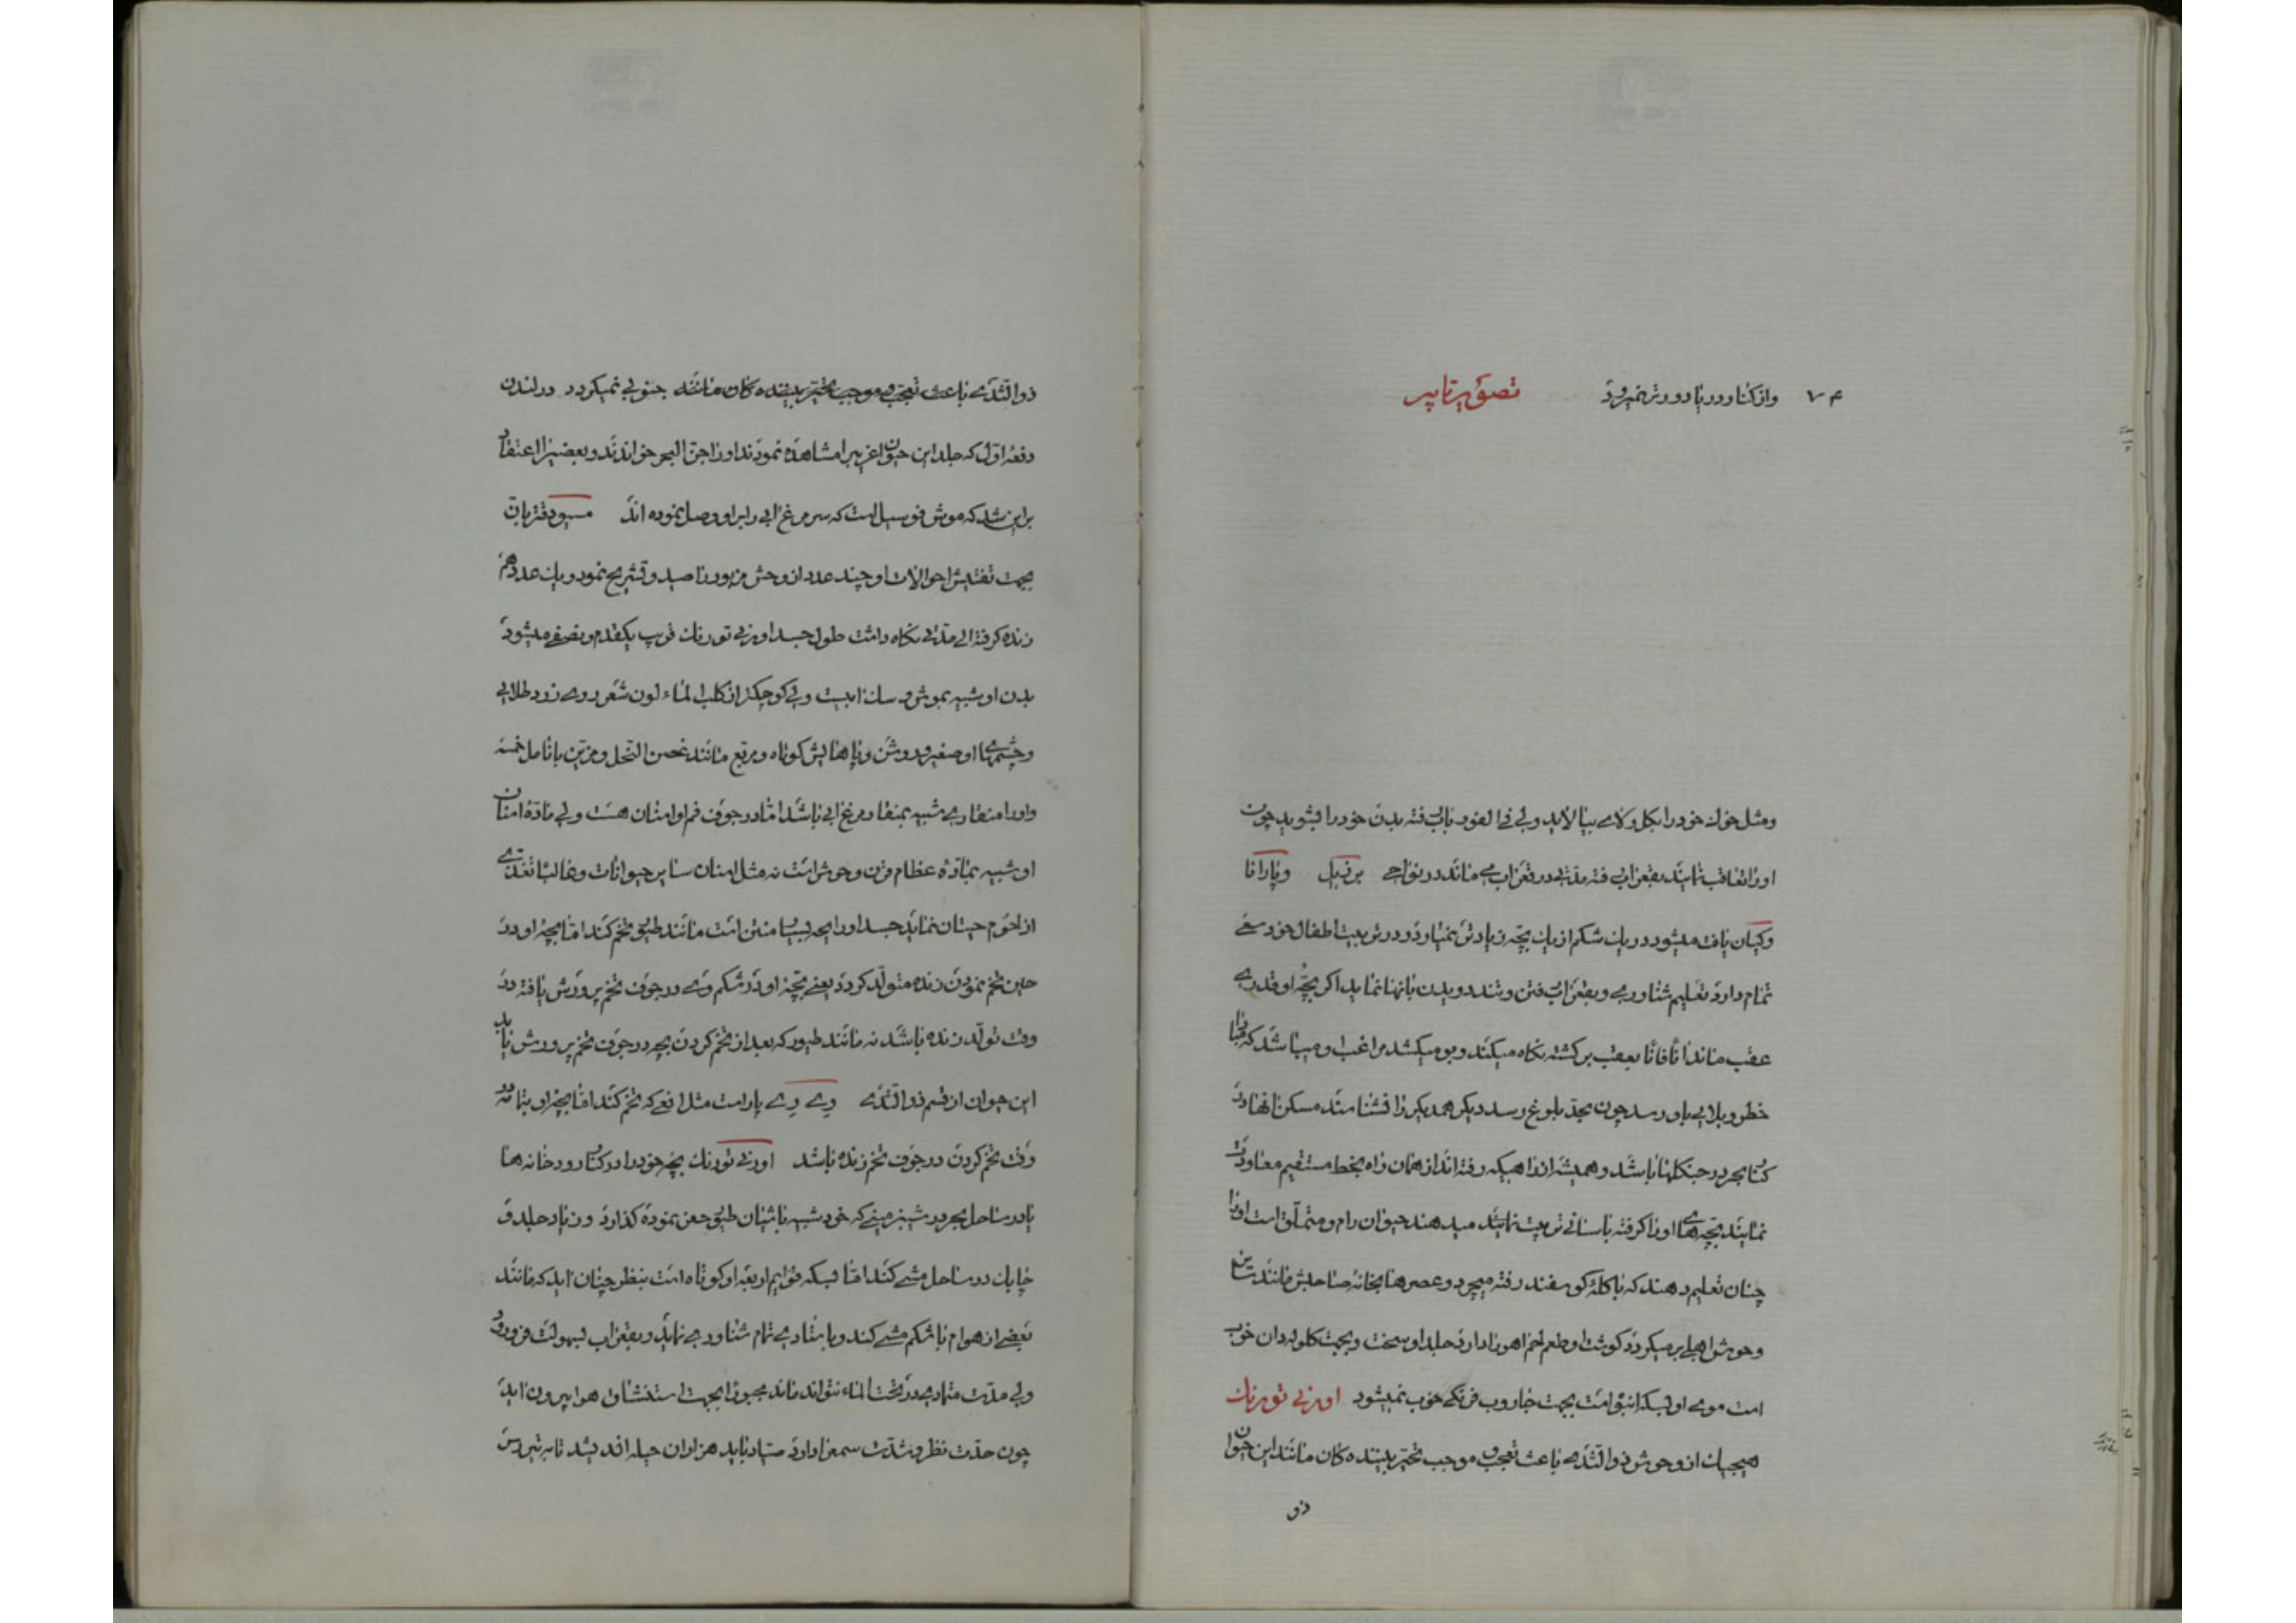 ۷۴ واز کنار دریا دورتر نمیرود تصویر تاپیر
ومثل خوک خود را بکل ولای بیالاید ولی فی الفور بآب رفته بدن خود را بشوید چون
اورا تعاقب نمایند بقعر آب رفته مدتی در قعر آب می ماند در نواحی برزیل وپارانا
وکیان یافت میشود در یک شکم از یک بچه زیادتر نمیاورد و در تربیت اطفال خود سعی
تمام دارد تعلیم شناوری وبقعر آب رفتن وتند دویدن بآنها نماید اکر بچه او قدری
عقب ماند آنا فانا بعقب برکشته نکاه میکند وبو میکشد مراغب او میباشد که مبادا
خطر وبلایی باو رسد چون بحد بلوغ رسد دیکر همدیکر را نشناسند مسکن آنها در
کنار بحر در جنکلها باشد وهمیشه از راهیکه رفته اند از همان راه بخط مستقیم معاودت
نمایند بچه های اورا کرفته بآسانی تربیت نمایند میدهند حیوان رام ومتملق است اورا
چنان تعلیم دهند که با کله کوسفند رفته میچرد وعصرها بخانه صاحبش مانند سایر
وحوش اهلی برمیکردد کوشت او طعم لحم آهو را دارد جلد او سخت وبجهت کلوله دان خوب
است موی او لیسکه انبوه است بجهت جاروب فرنکی خوب نمیشود اورنی تورنک
هیچیک از وحوش ذوالثدی باعث تعجب و موجب تحیر بیننده کان مانند این حیوان
ذو
ذوالثدی باعث تعجب و موجب تحیر بیننده کان مانند جنوبی نمیکردد در لندن
دفعه اول که جلد این حیوان غریب را مشاهده نمودند اورا جن البحر خواندند وبعضیرا اعتقاد
براین شد که موش فوسیل است که سر مرغ آبی را براو وصل نموده اند مسیو
بجهت تفتیش احوالات او چند عدد از وحش مزبور را صید وتشریح نمود ویک عدد هم
زنده کرفته الی مدتی نکاه داشت طول جسد اورنی تورنک قریب یکقدم ونصفی میشود
بدن او شبیه بموش و سک آبیست ولی کوچکتر از کلب الماء لون شعر روی زرد طلایی
وچشمهای او صغیر و روشن وپاهایش کوتاه ومربع مانند غصن النخل ومزین بانامل خمسه
واورا منقاری شبیه بمنقار مرغ آبی باشد اما در جوف فم او اسنان هست ولی ماده اسنان
او شبیه بماده عظام قرن وحوش است نه مثل اسنان سایر حیوانات وغالبا تغذی
از لحوم حیتان نماید جسد او رایحه بسیار منتن است مانند طیور تخم کند اما بچه او در
حین تخم نمودن زنده متولد کردد یعنی بچه او در شکم وی در جوف تخم پرورش یافته در
وقت تولد زنده باشد نه مانند طیور که بعد از تخم کردن بچه در جوف تخم پرورش یابد
این حیوان از قسم ذوالثدی وی وی پار است مثل افعی که تخم کند اما بچه او بتمامه در
وقت تخم کردن در جوف تخم زنده باشد اورنی تورنک بچه خود را در کنار رودخانه ها
یا در ساحل بحر در شبز مینی که خود شبیه باشیان طیور حفر نموده کذارد و زیاد جلد و
چابک در ساحل مشی کند اما لیسکه قوایم اربعه او کوتاه است بنظر چنان آید که مانند
بعضی از هوام با شکم مشی کند وباستادی تمام شناوری نماید وبقعر آب بسهولت فرورود
ولی مدت متمادی در تحت الماء نتواند ماند مجبورا بجهت استنشاق هوا بیرون آید
چون حدت نظر وشدت سمع را دارد صیاد باید هزاران حیله اندیشد تا به تیررس